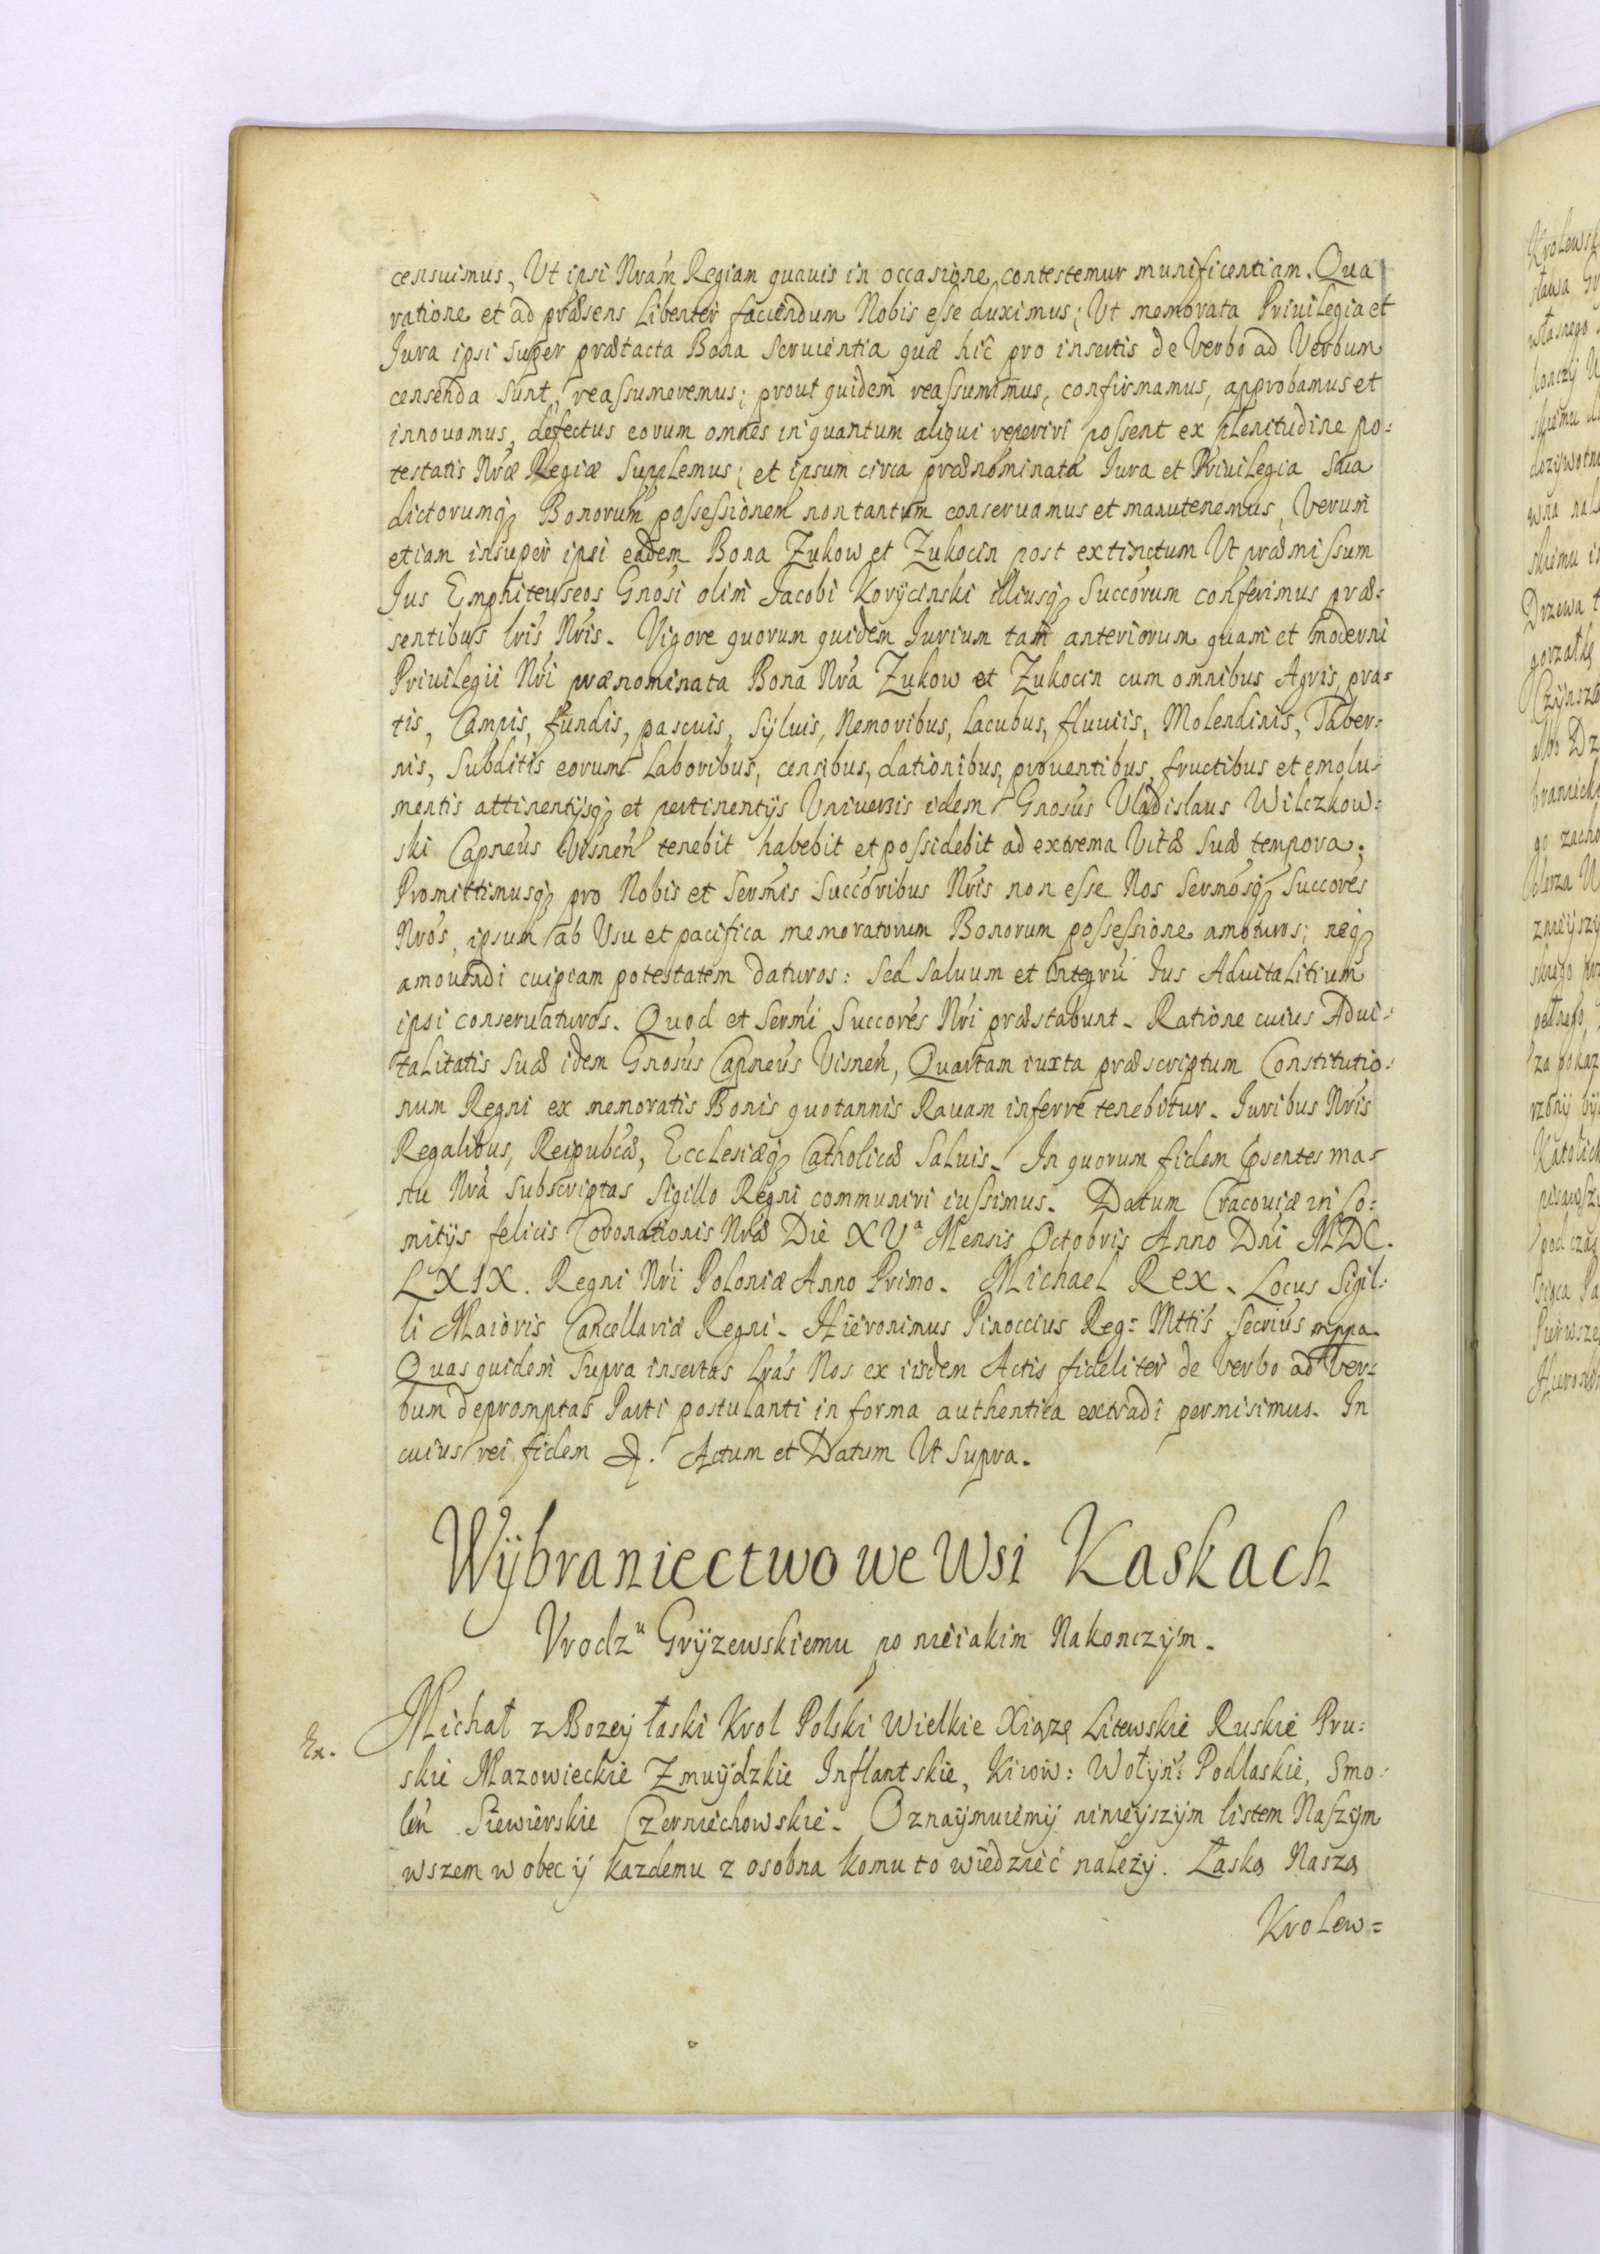 censuimus, Ut ipsi Nrãm Regiam quauis in occasione contestemur munificentiam. Qua
ratione et ad præsens libenter faciendum Nobis esse duximus; Ut memorata Priuilegia et
Jura ipsi super prætacta Bona seruientia quæ hic pro insertis de Verbo ad Verbum
censenda sunt, reassumeremus; prout quidem reassumimus, confirmamus, approbamus et
innouamus, defectus eorum omnes in quantum aliqui reperiri possent ex plenitudine po=
testatis Nræ Regiæ supplemus; et ipsum circa prænominata Iura et Priuilegia sua
dictorumq Bonorum possessionem non tantum conseruamus et manutenemus, Verum
etiam insuper ipsi eadem Bona Zukow et Zukocin post extinctum Ut præmissum
Jus Emphiteuseos Gnosi olim Jacobi Korycinski illiusq Succorum conferimus præ=
sentibus lris Nris. Vigore quorum quidem Iurium tam anteriorum quam et moderni
Priuilegii Nri prænominata Bona Nra Zukow et Zukocin cum omnibus Agris, pra=
tis, Campis, fundis, pascuis, Syluis, Nemoribus, Lacubus, fluuiis, Molendinis, Taber=
nis, Subditis eorum Laboribus, censibus, dationibus, prouentibus, fructibus et emolu=
mentis attinentijsq et pertinentijs Uniuersis idem Gnosus Uladislaus Wilczkow=
ski Capneus Visnen tenebit habebit et possidebit ad extrema Vitæ suæ tempora.
Promittimusq pro Nobis et Sermis Succoribus Nris non esse Nos Sermosq Succores
Nros, ipsum ab Usu et pacifica memoratorum Bonorum possessione amoturos; neq
amouendi cuipiam potestatem daturos: sed saluum et integrũ Ius Aduitalitium
ipsi conseruaturos. Quod et Sermi Succores Nri præstabunt. Ratione cuius Adui=
talitatis suæ idem Gnosus Capneus Visnen, Quartam iuxta præscriptum Constitutio=
num Regni ex memoratis Bonis quotannis Rauam inferre tenebitur. Iuribus Nris
Regalibus, Reipubcæ, Ecclesiæq Catholicæ Saluis. In quorum fidem psentes ma=
nu Nra subscriptas Sigillo Regni communiri iussimus. Datum Cracouiæ in Co=
mitijs felicis Coronationis Nræ Die XVa Mensis Octobris Anno Dni MDC.
LXIX. Regni Nri Poloniæ Anno Primo. Michael Rex. Locus Sigil=
li Maioris Cancellariæ Regni. Hieronimus Pinoccius Reg: Mttis Secrius mppa.
Quas quidem supra insertas Lras Nos ex iisdem Actis fideliter de Verbo ad Ver=
bum depromptas Parti postulanti in forma authentica extradi permisimus. In
cuius rei fidem &. Actum et Datum Ut Supra.
Wÿbraniectwo we Wsi Kaskach
Vrodzu Grÿzewskiemu po nieiakim Nakonczym.
Ex.
Michał z Bozey łaski Krol Polski Wielkie Xiązę Litewskie Ruskie Pru=
skie Mazowieckie Zmuÿdzkie Inflantskie, Kiiow: Wołyn: Podlaskie, Smo=
len Siewierskie Czerniechowskie. Oznaÿmuiemÿ ninieÿszÿm listem Naszÿm
wszem w obec ÿ kazdemu z osobna komu to wiedziec nalezÿ. Łaska Nasza
Krolew=